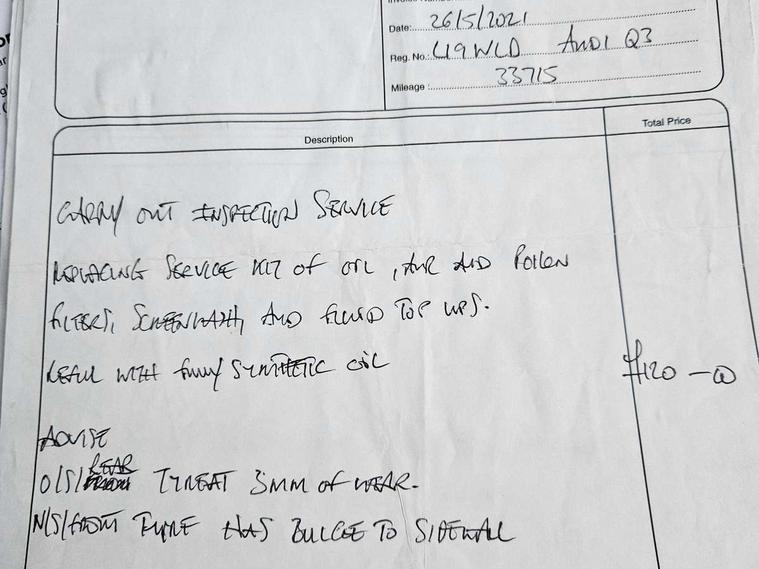 Date: 26/5/2021
Reg. No. L19WLD AUDI Q3
Mileage : 33715
Description Total Price
CARRY OUT INSPECTION SERVICE
REPLACING SERVICE KIT OF OIL, AIR AND POLLEN
FILTERS, SCREENWASH, AND FLUID TOP UPS.
REFILL WITH FULLY SYNTHETIC OIL £120-00
ADVISE
O/S/REAR TYRE AT 3MM OF WEAR.
N/S/FRONT TYRE HAS BULGE TO SIDEWALL